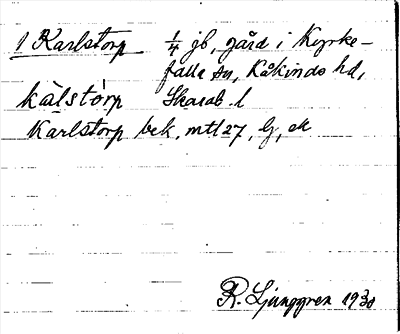 1 Karlstorp 1/4 jb, gård i Kyrke-
falla sn, Kåkinds hd,
kàlstórp Skarab. l
Karlstorp bek. mtl 27, lj, ek
R. Ljunggren 1930